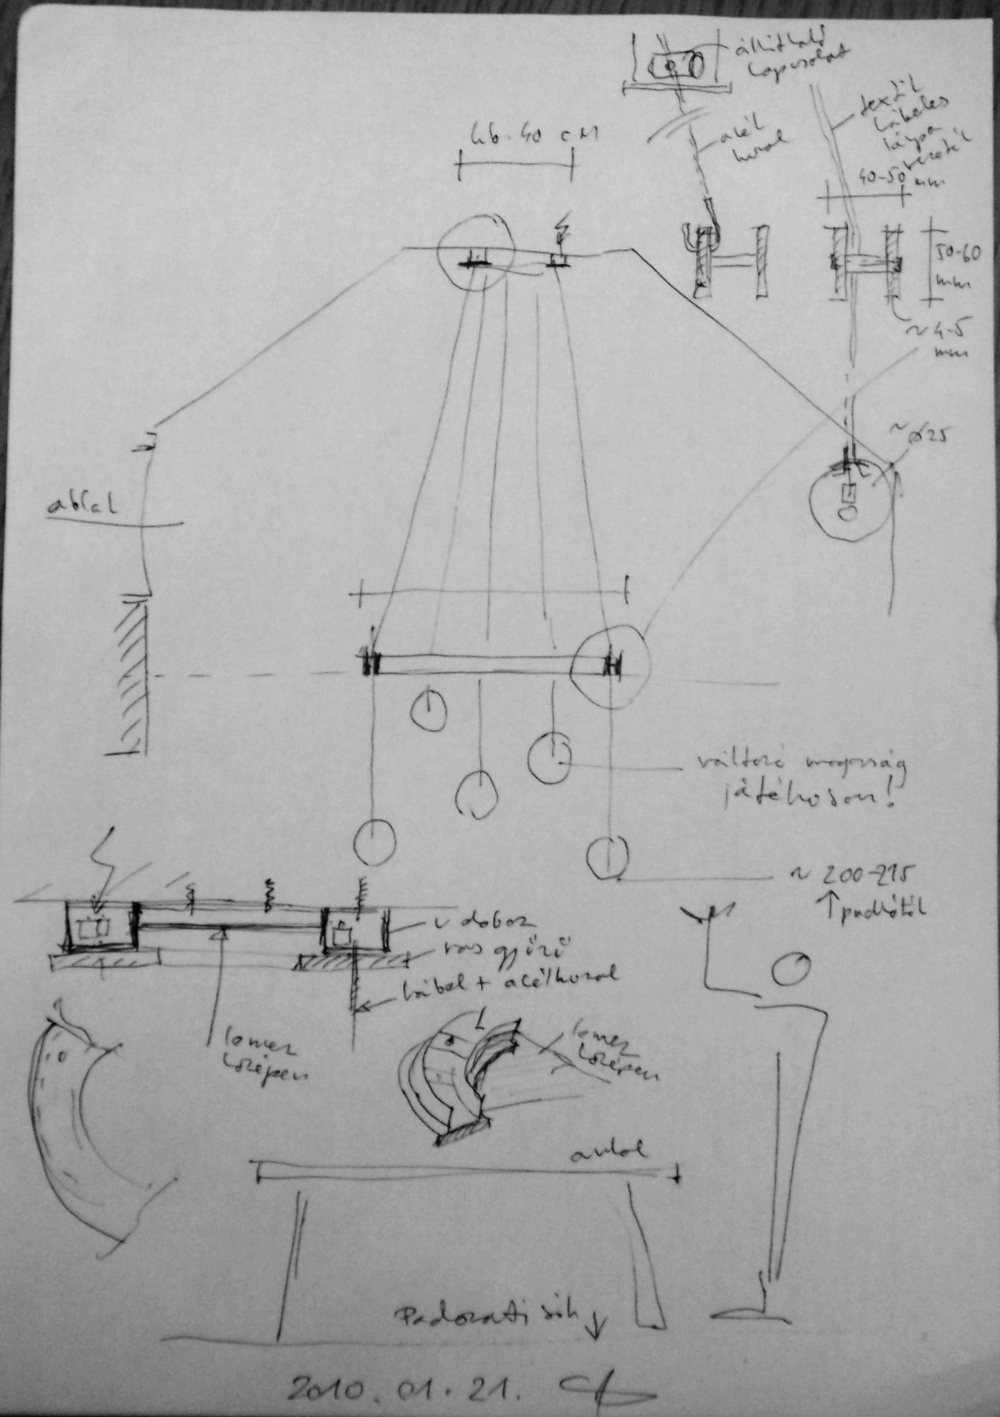 állítható
kapcsolat
46-40 cm
acél
huzal
textil
kábeles
lámpa
40-50
mm
50-60
mm
~4-5
mm
~ø25
ablak
változó magasság
játékoson!
~200-215
↑ padlótól
U doboz
vas gyűrű
kábel + acélhuzal
lemez
középen
lemez
középen
asztal
Padozati sík ↓
2010.01.21.